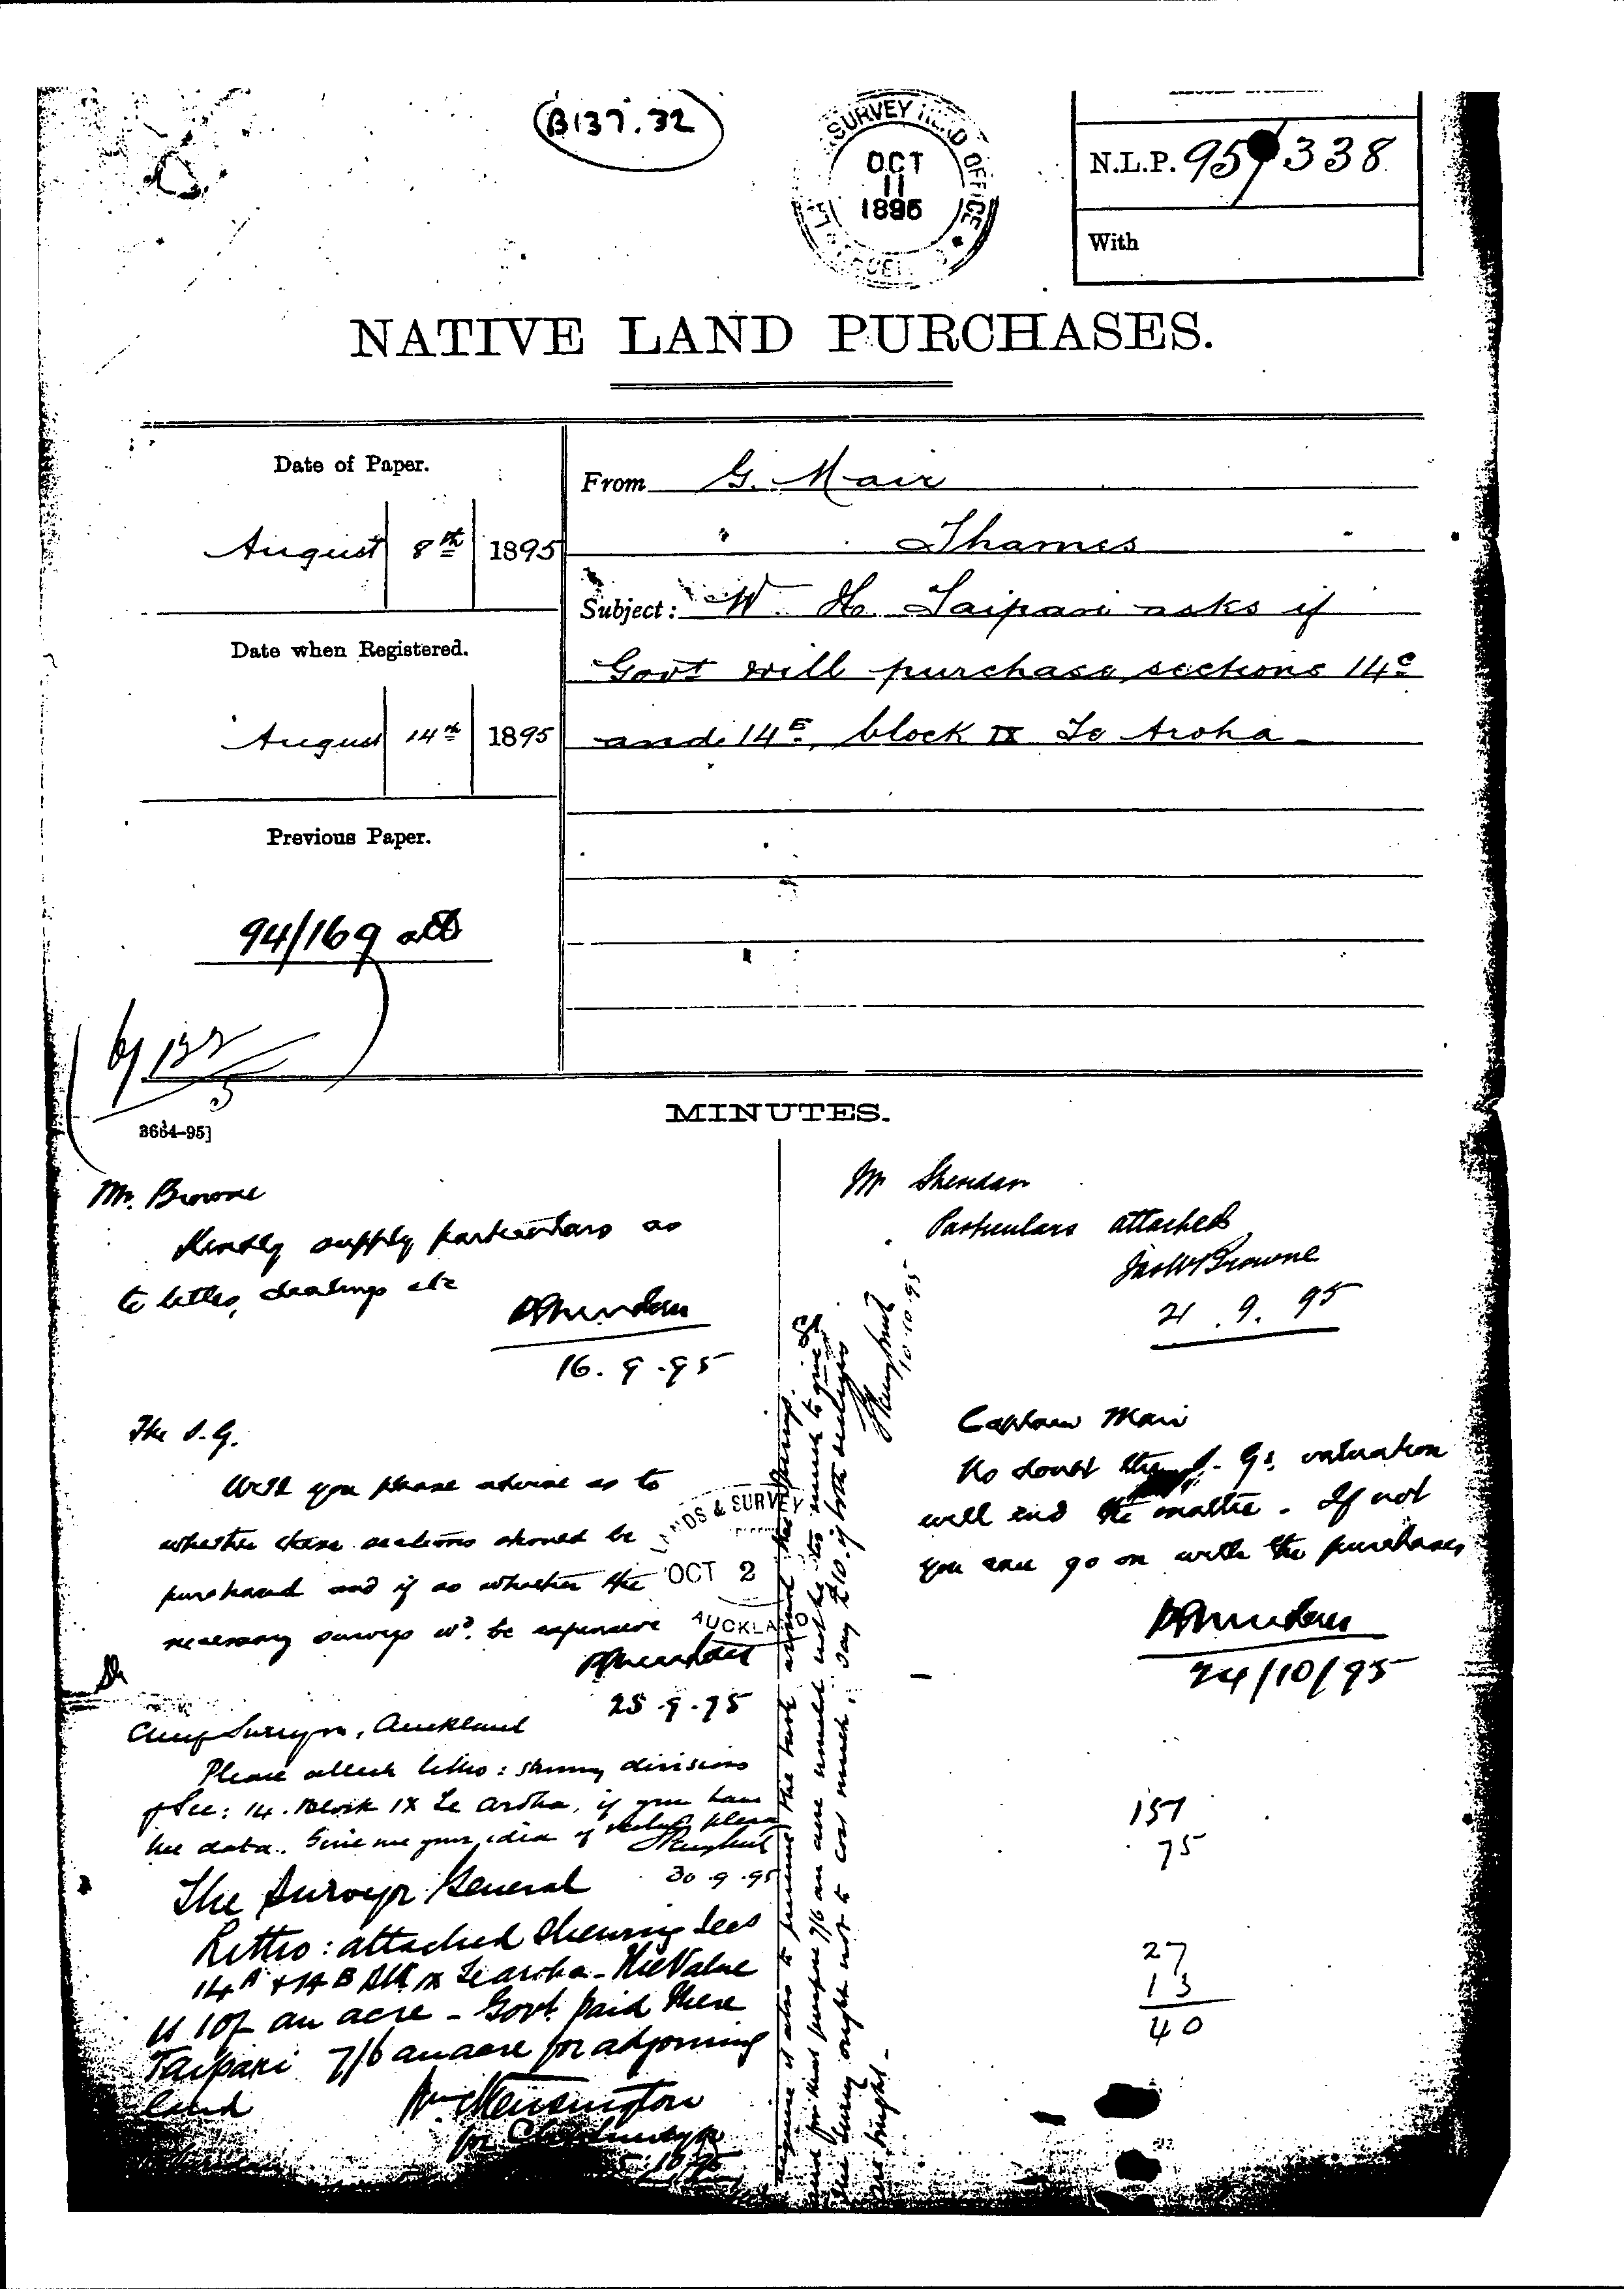 B137.32
SURVEY HEAD OFFICE
OCT
11
1895
N.L.P. 95/338
With
NATIVE LAND PURCHASES.
Date of Paper.
August 8th 1895
Date when Registered.
August 14th 1895
Previous Paper.
94/169
3664-95]
From G. Mair
" Thames
Subject: W. H. Taipari asks if
Govt will purchase sections 14C
and 14E, block IX Te Aroha
MINUTES.
Mr. Browne
Kindly supply particulars as
to titles, dealings etc
PSheridan
16.9.95
The S.G.
Will you please advise as to
whether these sections should be
purchased and if so whether the
necessary surveys wd. be expensive
PSheridan
25.9.95
LANDS & SURVEY
OCT 2
AUCKLAND
Chief Surveyor, Auckland
Please attach litho: showing divisions
of Sec: 14. Block IX Te Aroha, if you have
the data. Give me your idea of value please
30.9.95
The Surveyor General
Litho: attached shewing Secs
14A & 14B Blk IX Te Aroha - The Value
is 10/- an acre - Govt. paid Mere
Taipari 7/6 an acre for adjoining
land
for Ch Surveyor
5/10/95
the bush around the springs.
and for that purpose 7/6 an acre would not be too much to give
the survey ought not to cost much, say £10. if both sections
are bought -
10.10.95
Mr Sheridan
Particulars attached
JasWBrowne
21.9.95
Captain Mair
No doubt the S. Gs. valuation
will end the matter. If not
you can go on with the purchases
PSheridan
24/10/95
157
75
27
13
40